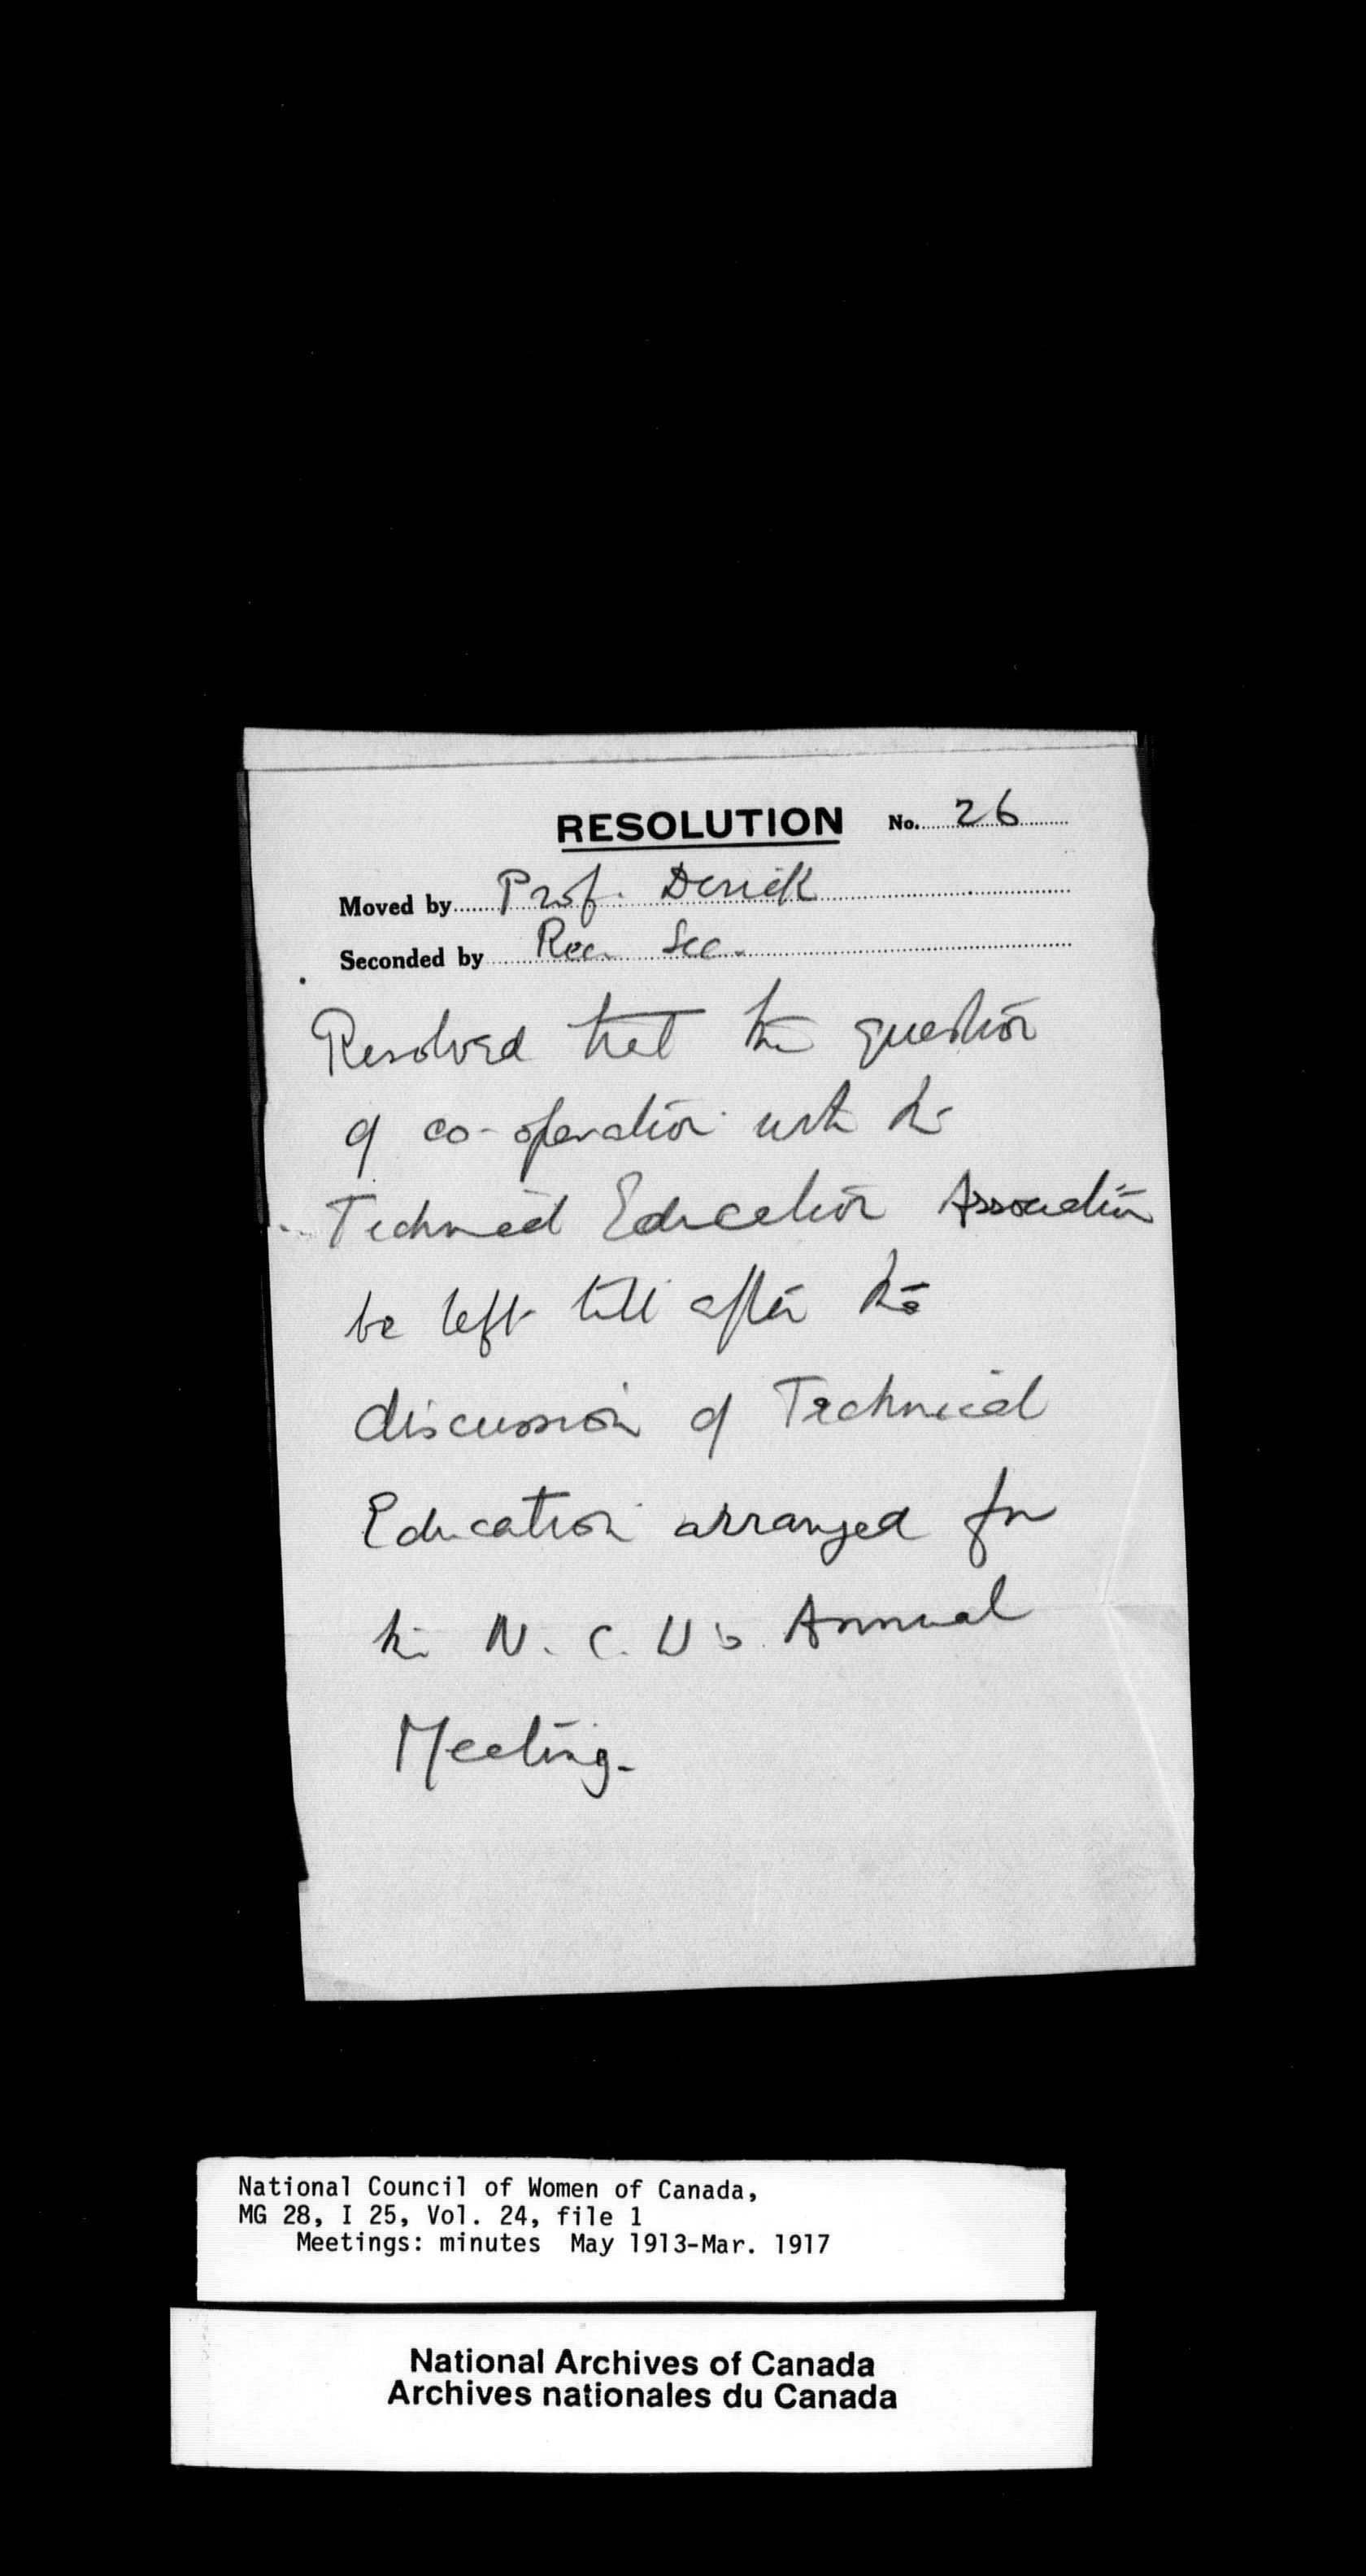 RESOLUTION No. 26
Moved by Prof. Derick
Seconded by Rec. Sec.
Resolved that the question
of co-operation with the
Technical Education Association
be left till after the
discussion of Technical
Education arranged for
the N. C. W's Annual
Meeting.
National Council of Women of Canada,
MG 28, I 25, Vol. 24, file 1
Meetings: minutes May 1913-Mar. 1917
National Archives of Canada
Archives nationales du Canada